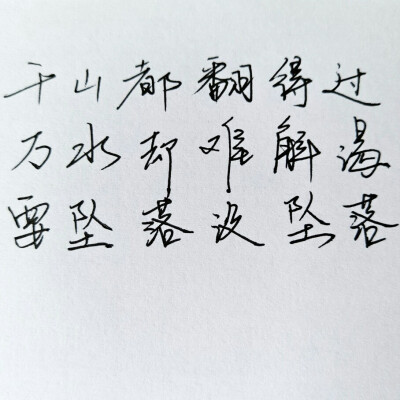 千山都翻得过
万水却难解渴
要坠落没坠落